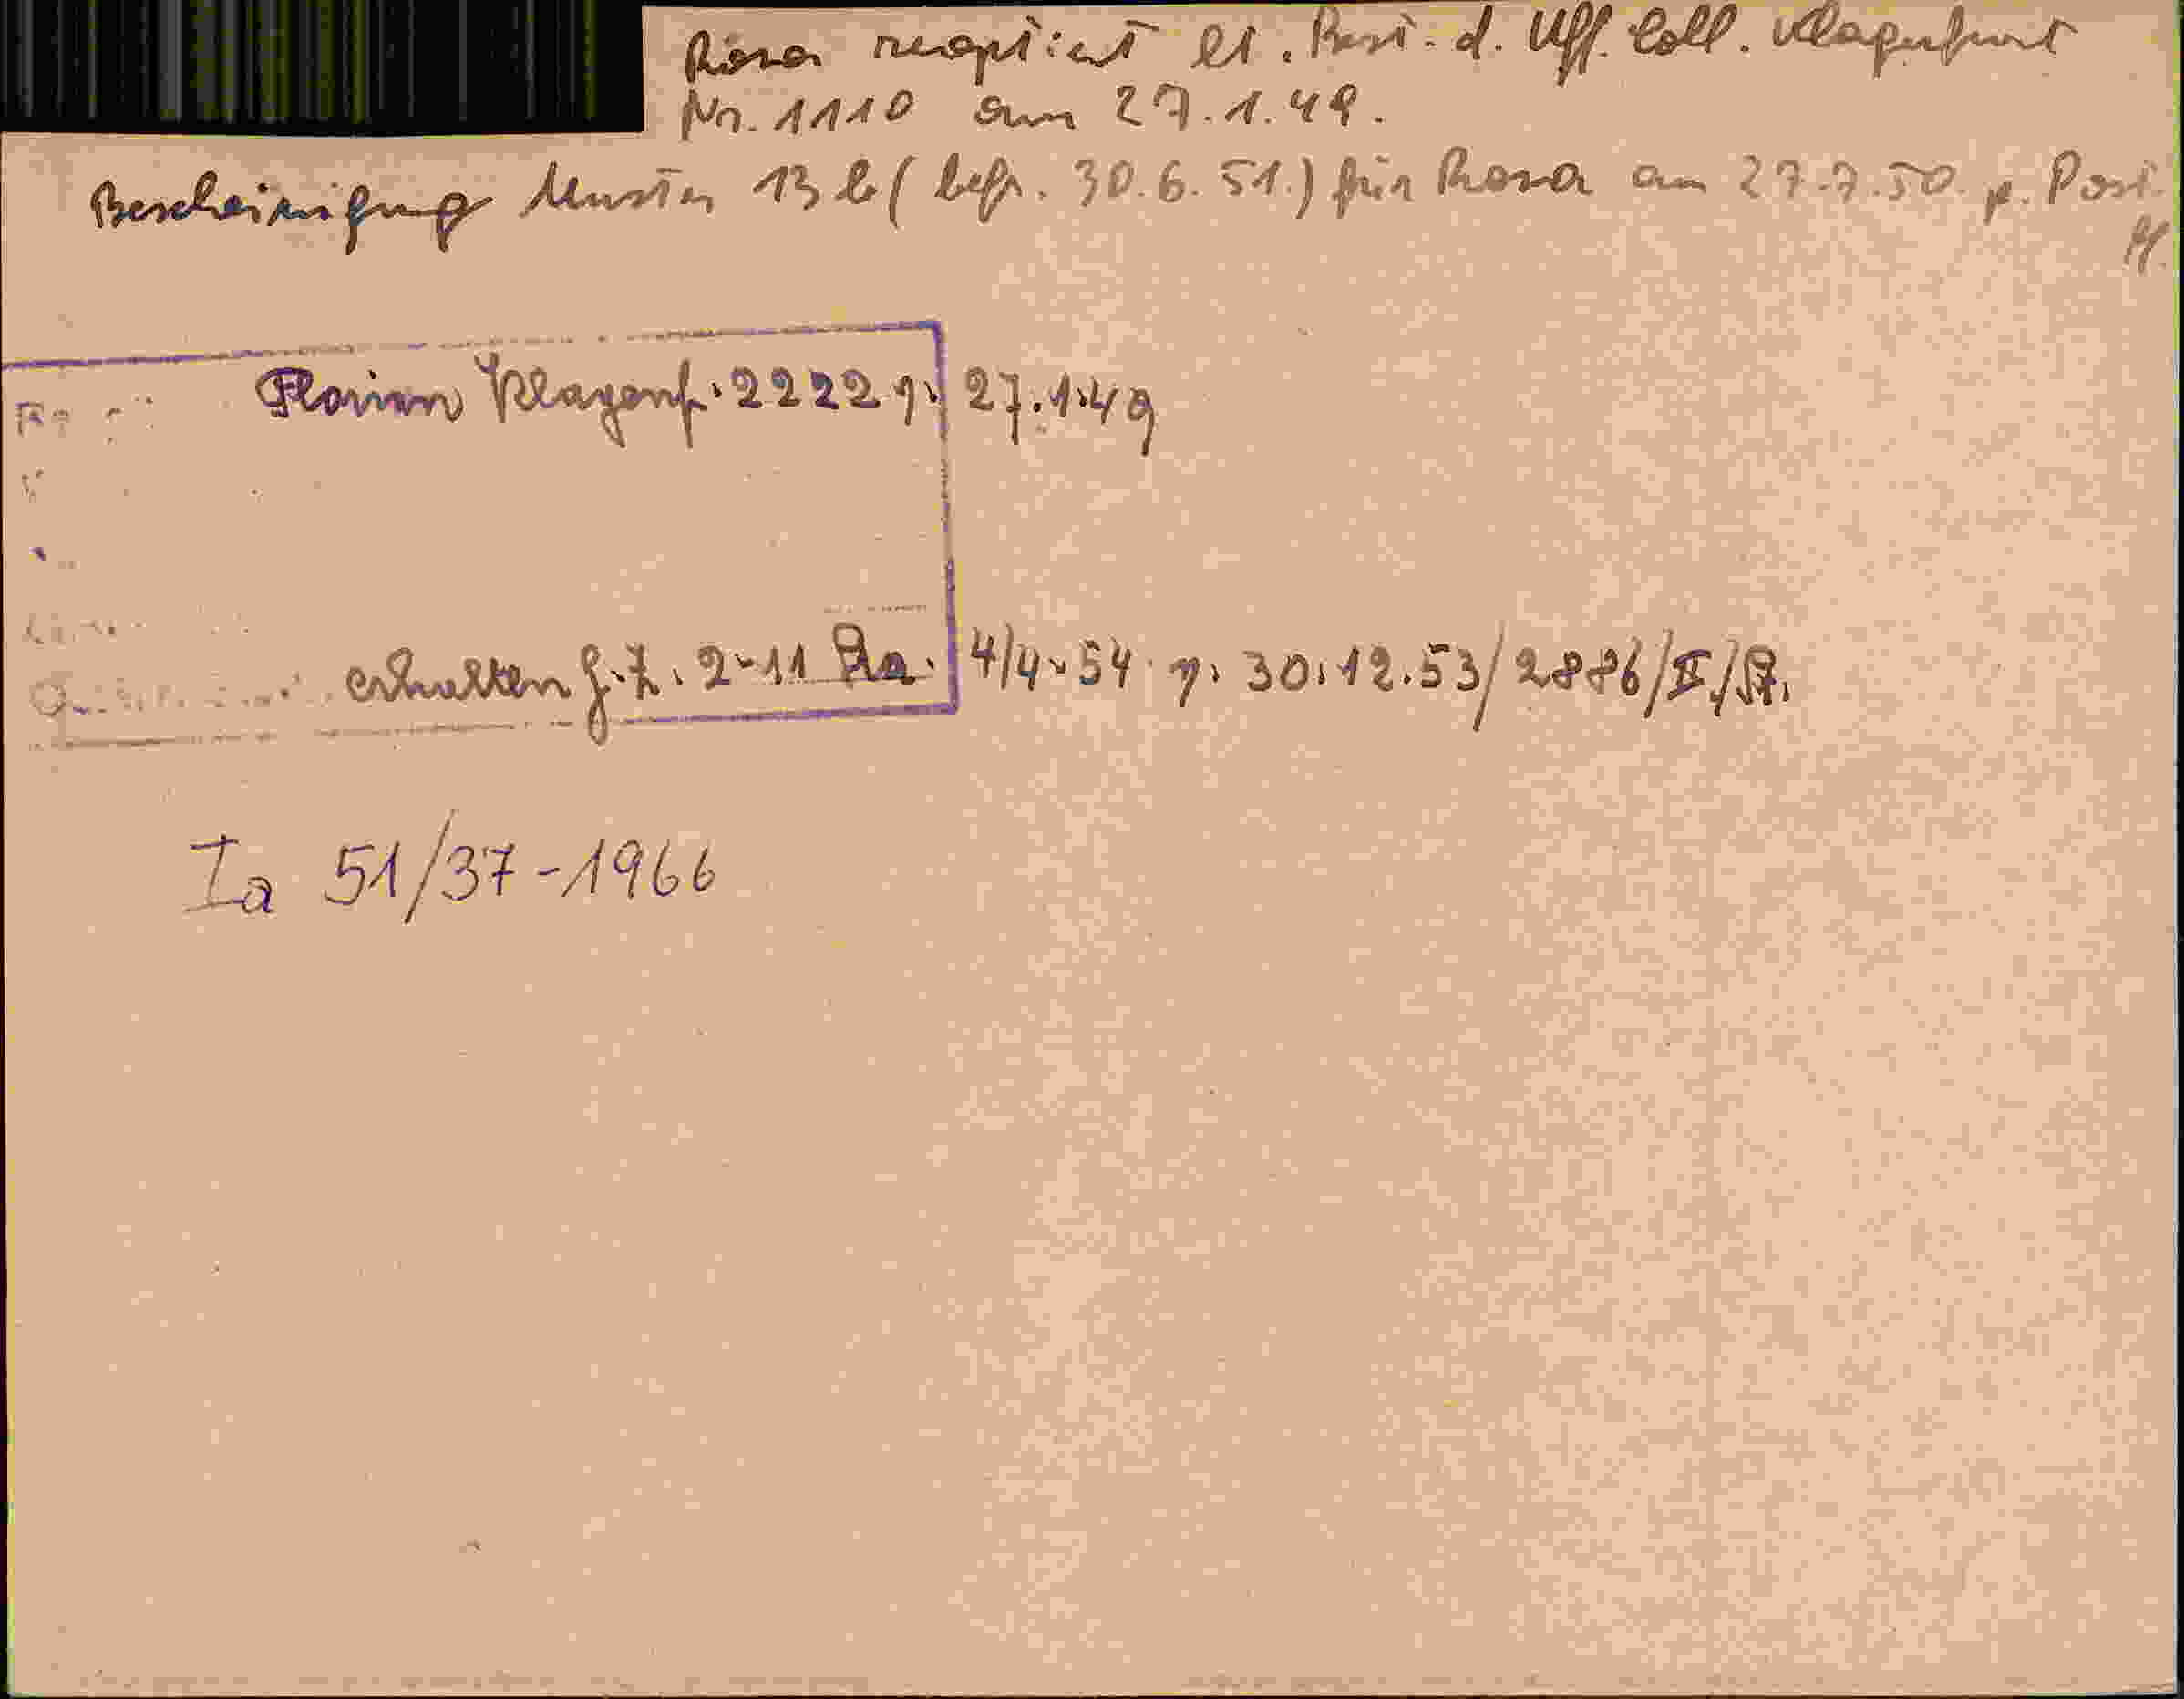 Rosa reoptiert lt. Best. d. Uff. Coll. Klagenfurt
Nr. 1110 am 27.1.49.
Bescheinigung Muster 13 b (befr. 30.6.51.) für Rosa am 27.7.50. p. Post.
Florian Klagenf. 2222 v. 27.1.49
erhalten g. Z. 2-11 Ra. 4/4-54 v. 30.12.53/2886/II/
Ia 51/37-1966